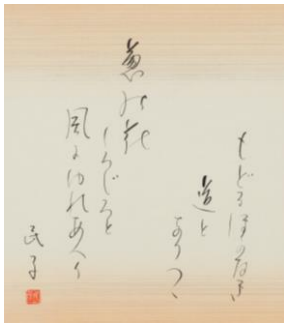 もどる津のなき
道と
なりつゝ
葱の花
しろじろと
風にゆれあへり
民子